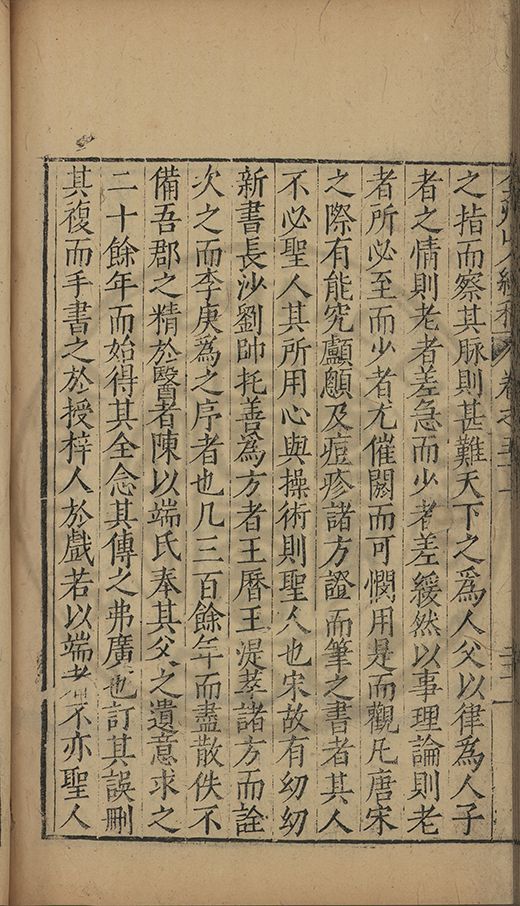 之指而察其脉則甚難天下之為人父以律為人子
者之情則老者差急而少者差緩然以事理論則老
者所必至而少者尤催閼而可憫用是而觀凡唐宋
之際有能究顱顖及痘疹諸方證而筆之書者其人
不必聖人其所用心與操術則聖人也宋故有幼幼
新書長沙劉帥托善為方者王曆王湜萃諸方而詮
次之而李庚為之序者也几三百餘年而盡散佚不
備吾郡之精於醫者陳以端氏奉其父之遺意求之
二十餘年而始得其全念其傳之弗廣也訂其誤刪
其複而手書之於授梓人於戲若以端者不亦聖人